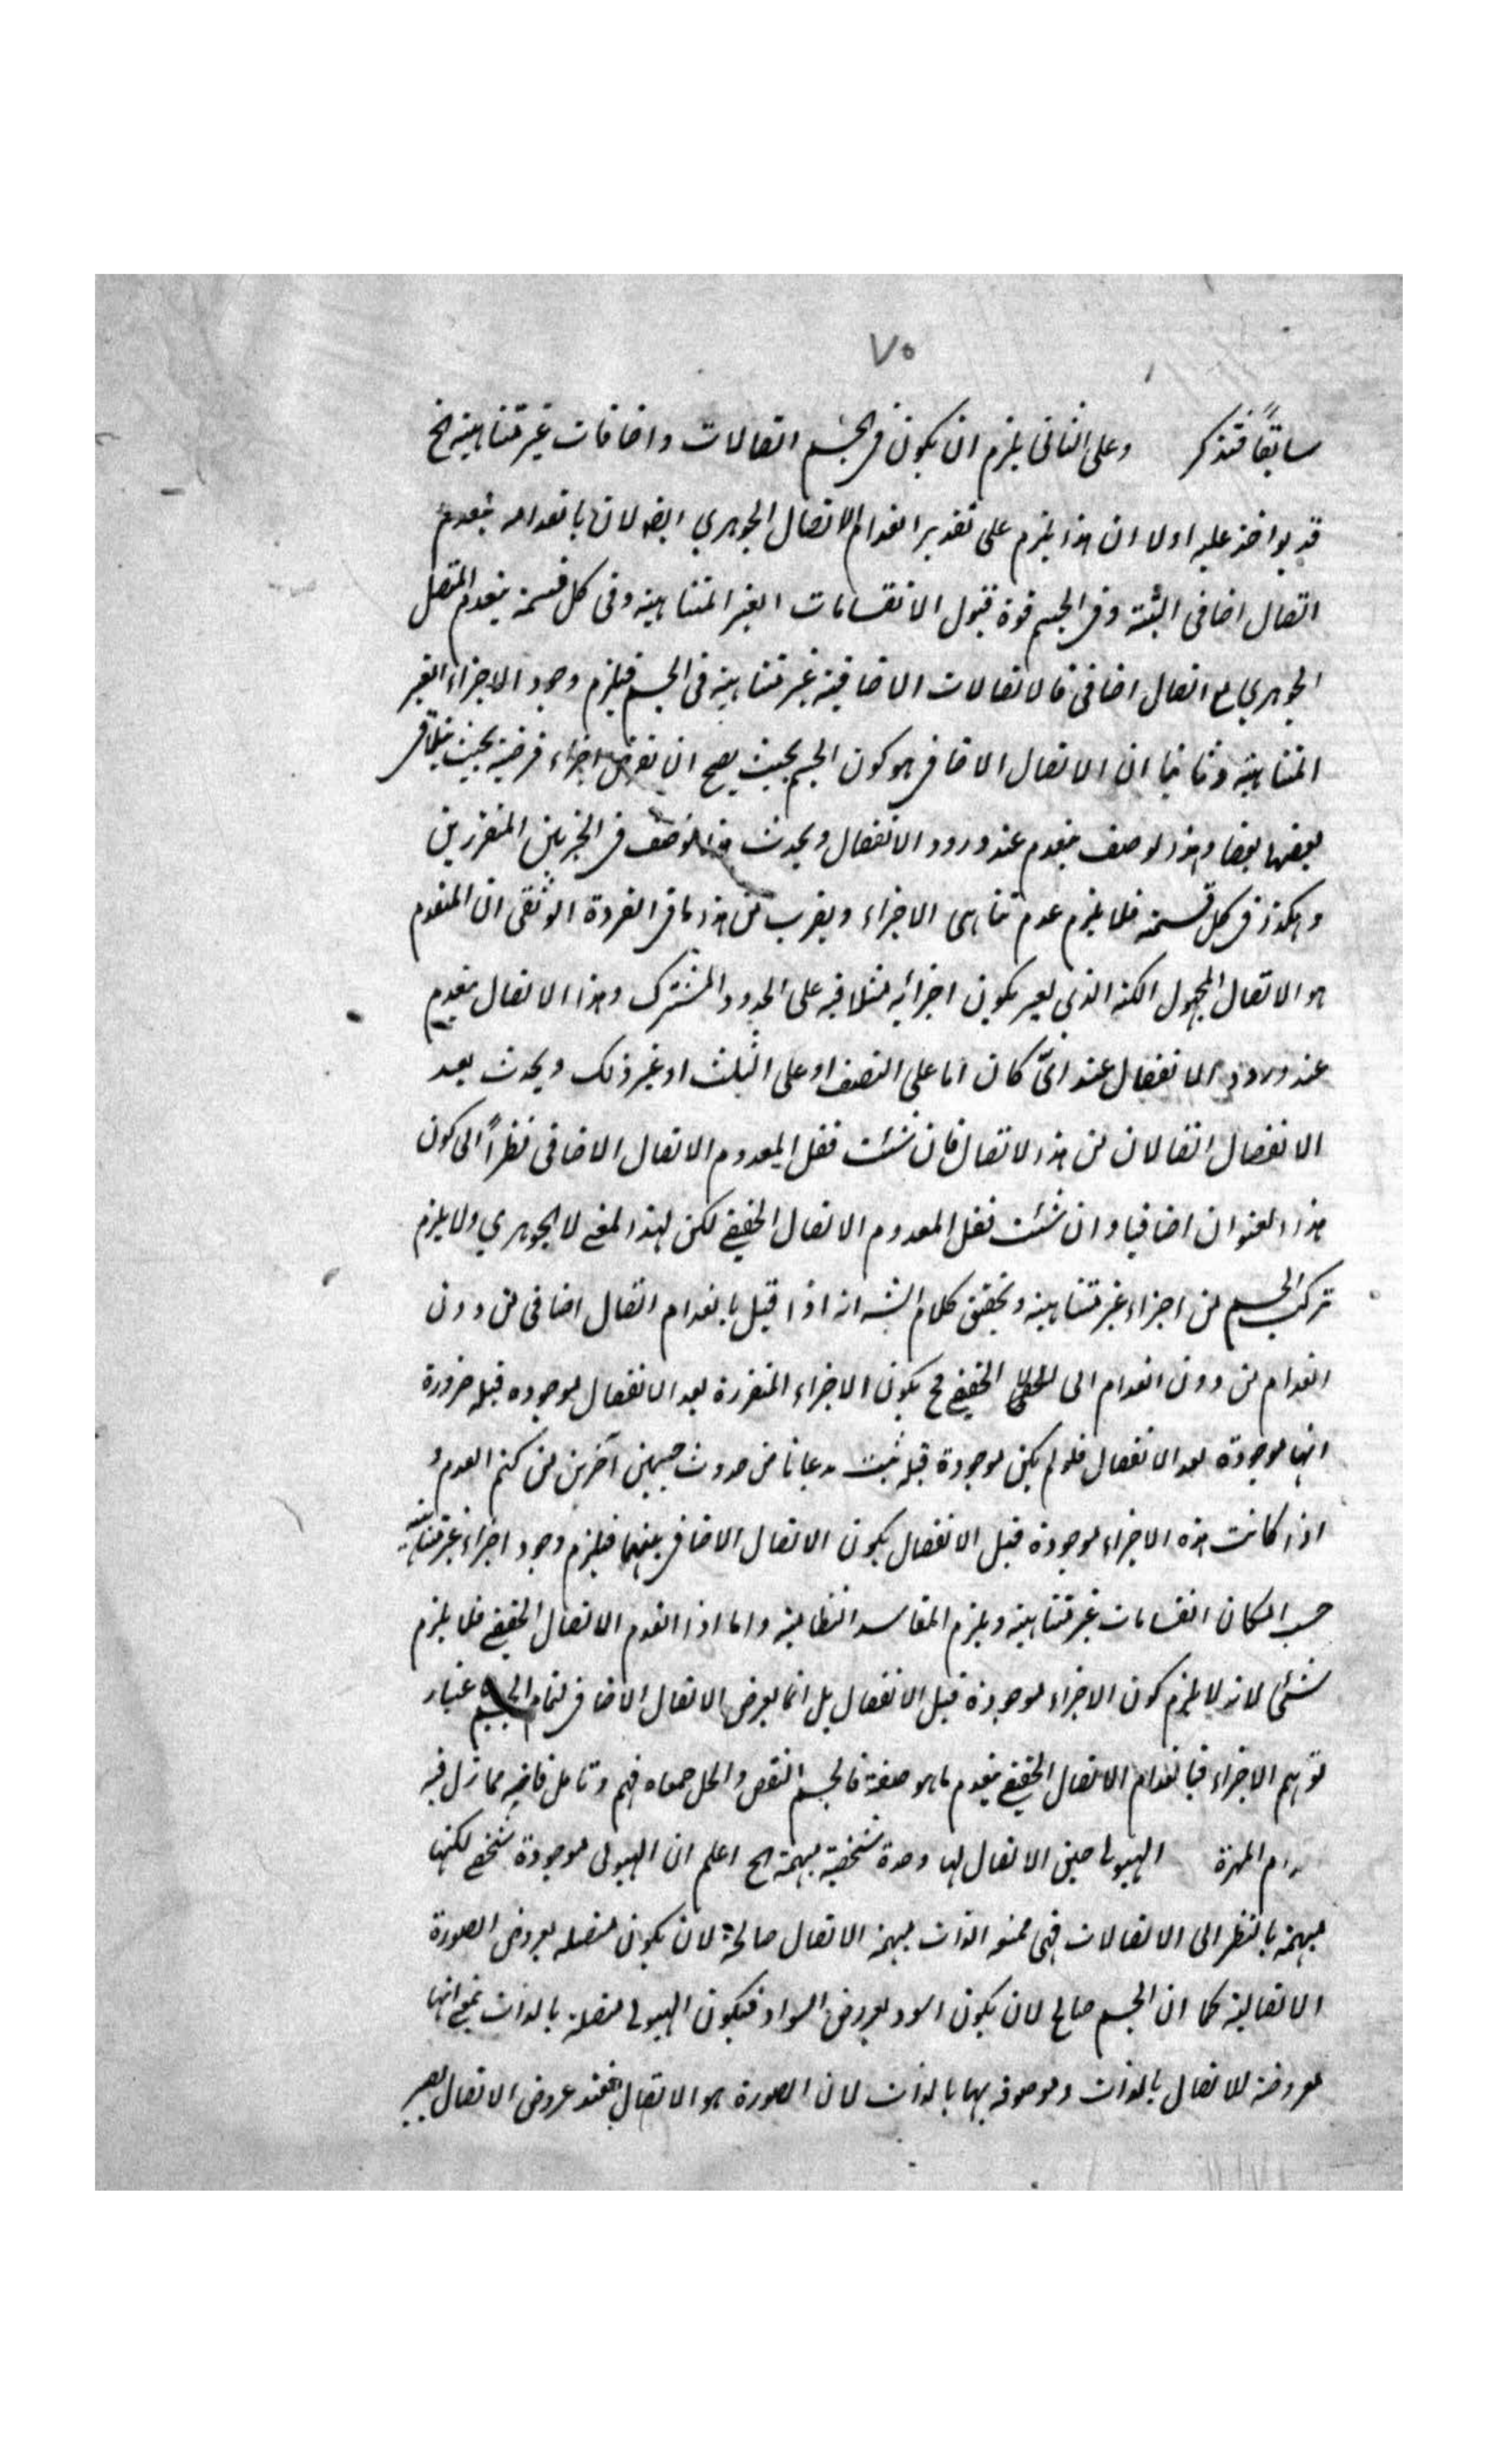 ٧٥
سابقًا فتذكر وعلى الثانى يلزم ان يكون فى الجسم اتصالات واضافات غير متناهية الخ
قد يواخذ عليه اولا ان هذا يلزم على تقدير انعدام الاتصال الجوهري ايضا لان بانعدامه ينعدم
اتصال اضافى البتة وفى الجسم قوة قبول الانقسامات الغير المتناهية وفى كل قسمة ينعدم المتصل
الجوهري مع اتصال اضافى فالاتصالات الاضافية غير متناهية فى الجسم فيلزم وجود الاجزاء الغير
المتناهية وثانيا ان الاتصال الاضافى هو كون الجسم بحيث يصح ان يفرض اجزاء فرضية بحيث يتلاقى
بعضها بعضا وهذا الوصف ينعدم عند ورود الانفصال ويحدث هذا الوصف فى الجزئين المتقررين
وهكذا فى كل قسمة فلا يلزم عدم تناهى الاجزاء ويقرب من هذا ما فى العروة الوثقى ان المنعدم
هو الاتصال المجهول الكنه الذى يعبر بكون اجزائه متلاقية على الحدود المشترك وهذا الاتصال ينعدم
عند ورود الانفصال عند اىّ كان اما على النصف او على الثلث او غير ذلك ويحدث بعد
الانفصال اتصالان من هذا الاتصال فان شئت فقل المعدوم الاتصال الاضافى نظرًا الى كون
هذا العنوان اضافيا وان شئت فقل المعدوم الاتصال الحقيقى لكن لهذا المعنى لا الجوهري ولا يلزم
تركب الجسم من اجزاء غير متناهية وتحقيق كلام الشه انه اذا قيل بانعدام اتصال اضافى من دون
انعدام من دون انعدام الى الحقيقى فح يكون الاجزاء المتقررة بعد الانفصال موجوده قبله ضرورة
انها موجودة بعد الانفصال فلو لم يكن موجودة قبله ثبت مدعانا من حدوث جسمين آخرين من كتم العدم و
اذا كانت هذه الاجزاء موجودة قبل الانفصال يكون الاتصال الاضافى بينهما فيلزم وجود اجزاء غير متناهية
حسب امكان انقسامات غير متناهية ويلزم المفاسد النظامية واما اذا انعدم الاتصال الحقيقى فلا يلزم
شئى لانه لا يلزم كون الاجزاء موجودة قبل الانفصال بل انما يعرض الاتصال الاضافى لتمام الجسم باعتبار
توهم الاجزاء فبانعدام الاتصال الحقيقى ينعدم ما هو صفة فالجسم النقص والحل جمعاه فهم وتامل فانه مما زل فيه
اقدام المهرة الهيولى حين الاتصال لها وحدة شخصية مبهمة الخ اعلم ان الهيولى موجودة شخص لكنها
مبهمة بالنظر الى الاتصالات فهى الذات مبهمة الاتصال صالحة لان يكون متصله بعروض الصورة
الاتصالية كما ان الجسم صالح لان يكون اسود بعروض السواد فيكون الهيولى متصلة بالذات بمعنى انها
معروضة للاتصال بالذات وموصوفه بها بالذات لان الصورة هو الاتصال فعند عروض الاتصال يعبر